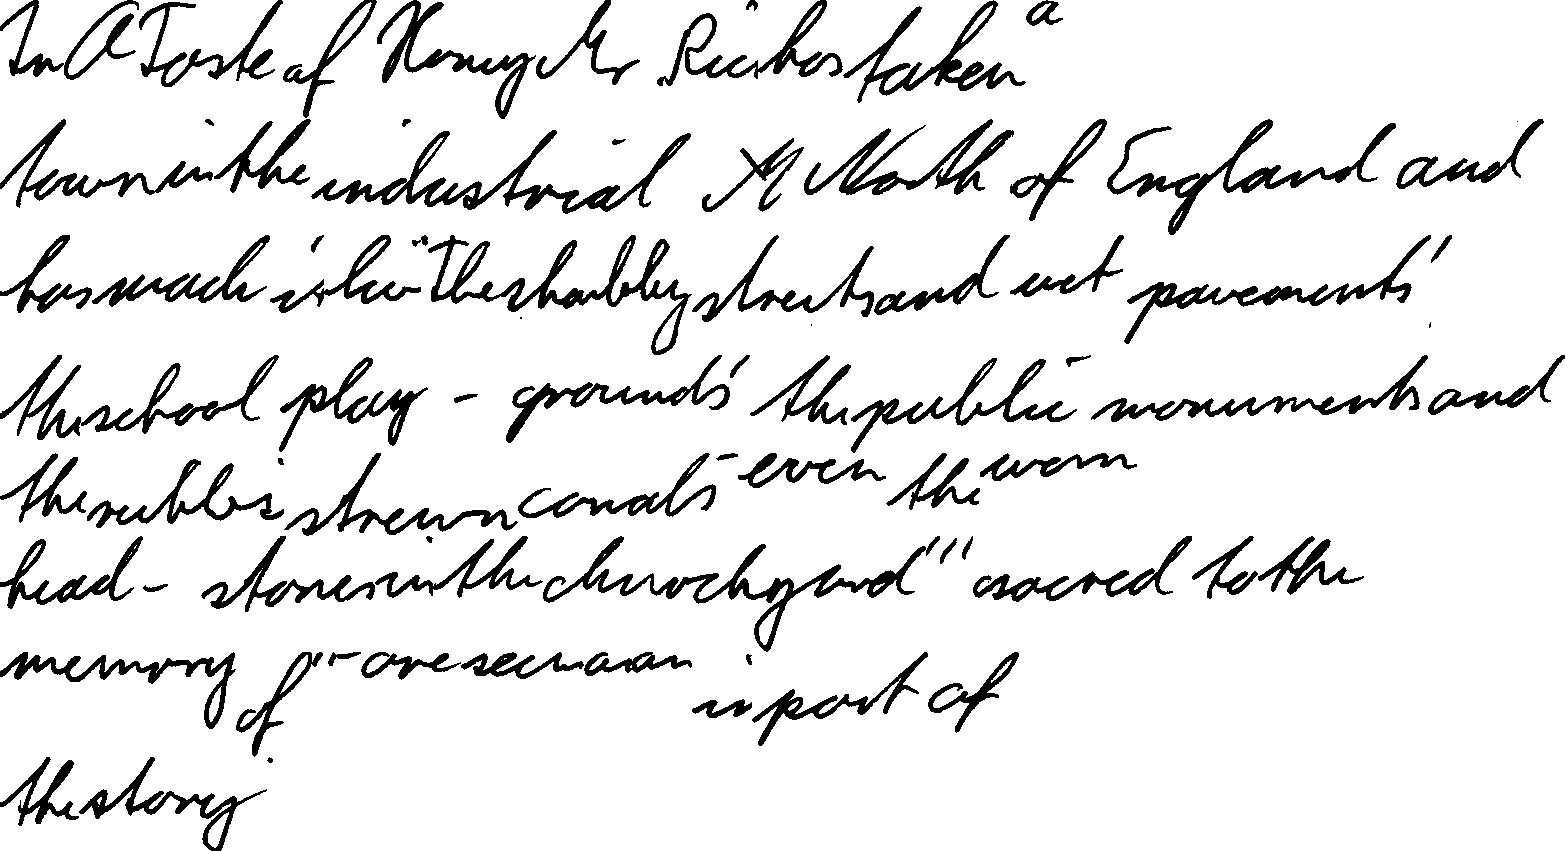 In A Taste of Honey Mr Ric. has taken a
town in the industrial North of England and
has made it live " The shabby streets and wet pavements '
the school play - grounds ' the public monuments and
the rubbis strewn canals - even the worn
head - stones in the churchyard " " sacred to the
memory of " - are seen as an is part of
the story